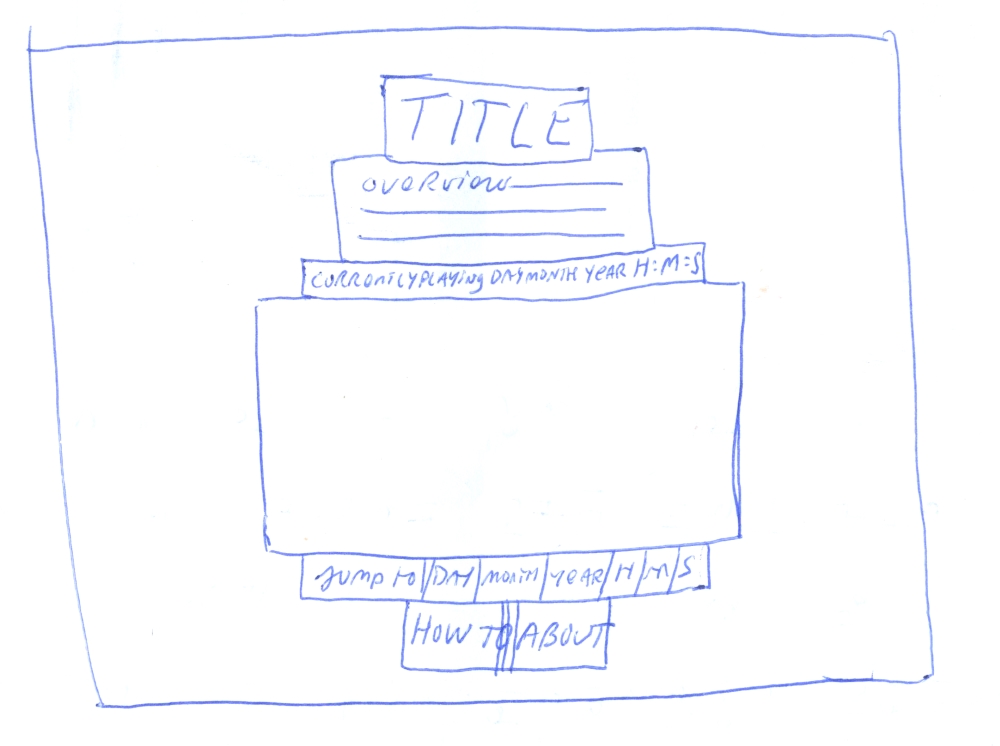 TITLE
OVERVIEW
CURRENTLY PLAYING DAY MONTH YEAR H:M:S
JUMP TO DAY MONTH YEAR H M S
HOW TO ABOUT